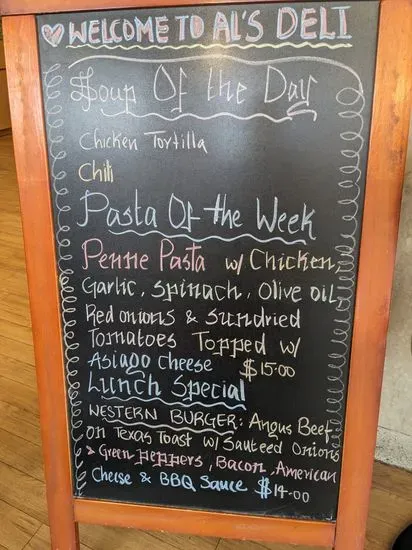 WELCOME TO AL'S DELI
Soup Of the Day
Chicken Tortilla
Chili
Pasta Of the Week
Penne Pasta w/ Chicken,
Garlic, spinach, Olive oil,
Red onions & sundried
Tomatoes Topped w/
Asiago Cheese $15.00
Lunch Special
WESTERN BURGER: Angus Beef
on Texas Toast w/ Sauteed Onions
& Green peppers, Bacon, American
Cheese & BBQ Sauce $14.00